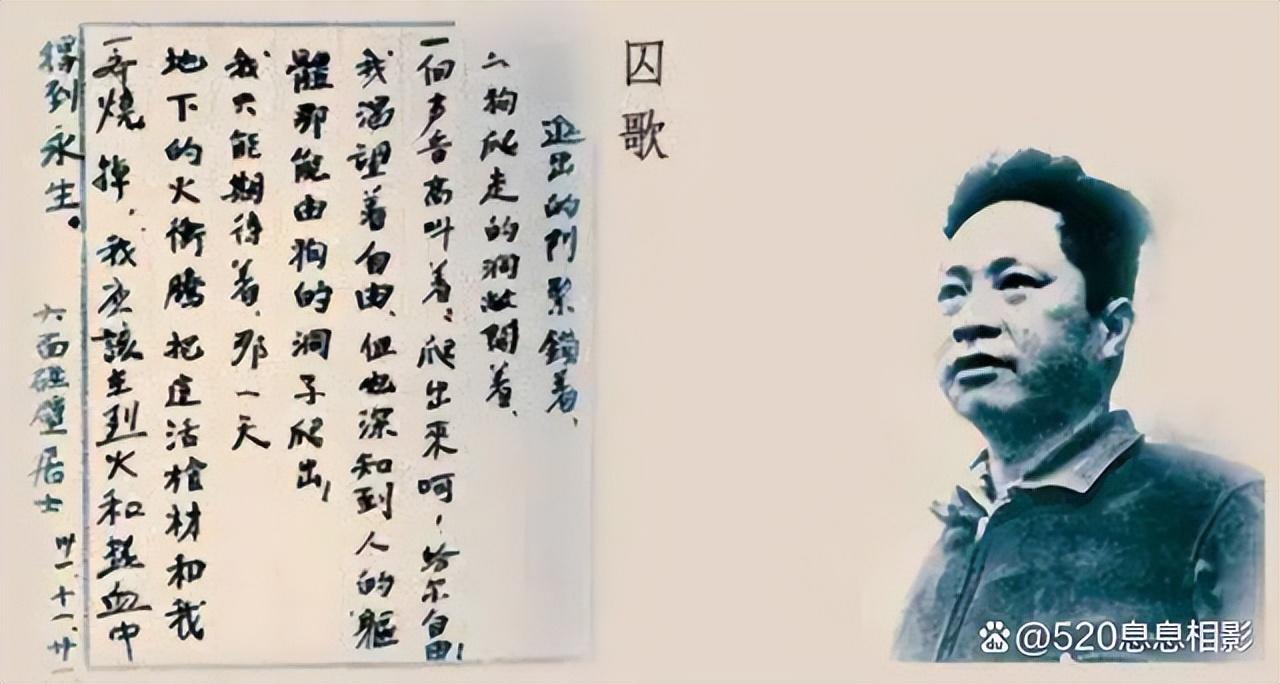 囚歌
進出的門緊鎖着、
狗爬走的洞敞開着、
一個声音高叫着：爬出來呵！給尔自由！
我渴望着自由、但也深知到人的軀
體那能由狗的洞子爬出！
我只能期待着、那一天
地下的火衝騰把這活棺材和我
一齊燒掉，我应該在烈火和熱血中
得到永生。
六面碰壁居士 卅一、十一、廿一
@520息息相影